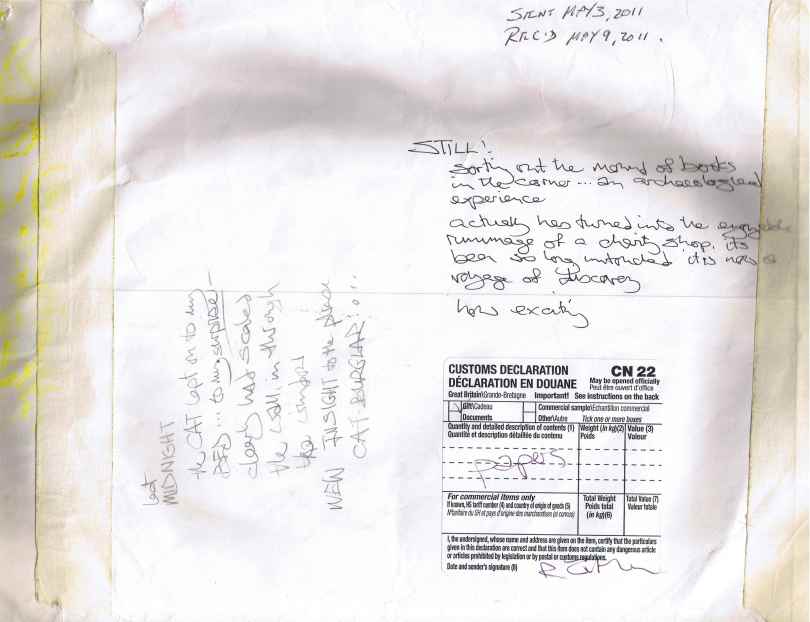 SENT MAY 3, 2011
REC'D MAY 9, 2011.
STILL!
sorting out the mound of books
in the corner ... an archaeological
experience
actually has turned into the
rummage of a charity shop, its
been so long untouched it is now a
voyage of discovery
how exciting
last
MIDNIGHT
the CAT lept on to my
BED ... to my surprise –
clearly had scaled
the wall in through
the window
NEW INSIGHT to the phrase
CAT-BURGLAR! ...
CUSTOMS DECLARATION CN 22
DÉCLARATION EN DOUANE May be opened officially
Peut être ouvert d'office
Great Britain\Grande-Bretagne Important! See instructions on the back
Gift\Cadeau Commercial sample\Echantillon commercial
Documents Other\Autre Tick one or more boxes
Quantity and detailed description of contents (1) Weight (in kg)(2) Value (3)
Quantité et description détaillée du contenu Poids Valeur
papers
For commercial items only Total Weight Total Value (7)
If known, HS tariff number (4) and country of origin of goods (5) Poids total Valeur totale
N°tarifaire du SH et pays d'origine des marchandises (si connus) (in kg)(6)
I, the undersigned, whose name and address are given on the item, certify that the particulars
given in this declaration are correct and that this item does not contain any dangerous article
or articles prohibited by legislation or by postal or customs regulations.
Date and sender's signature (8)